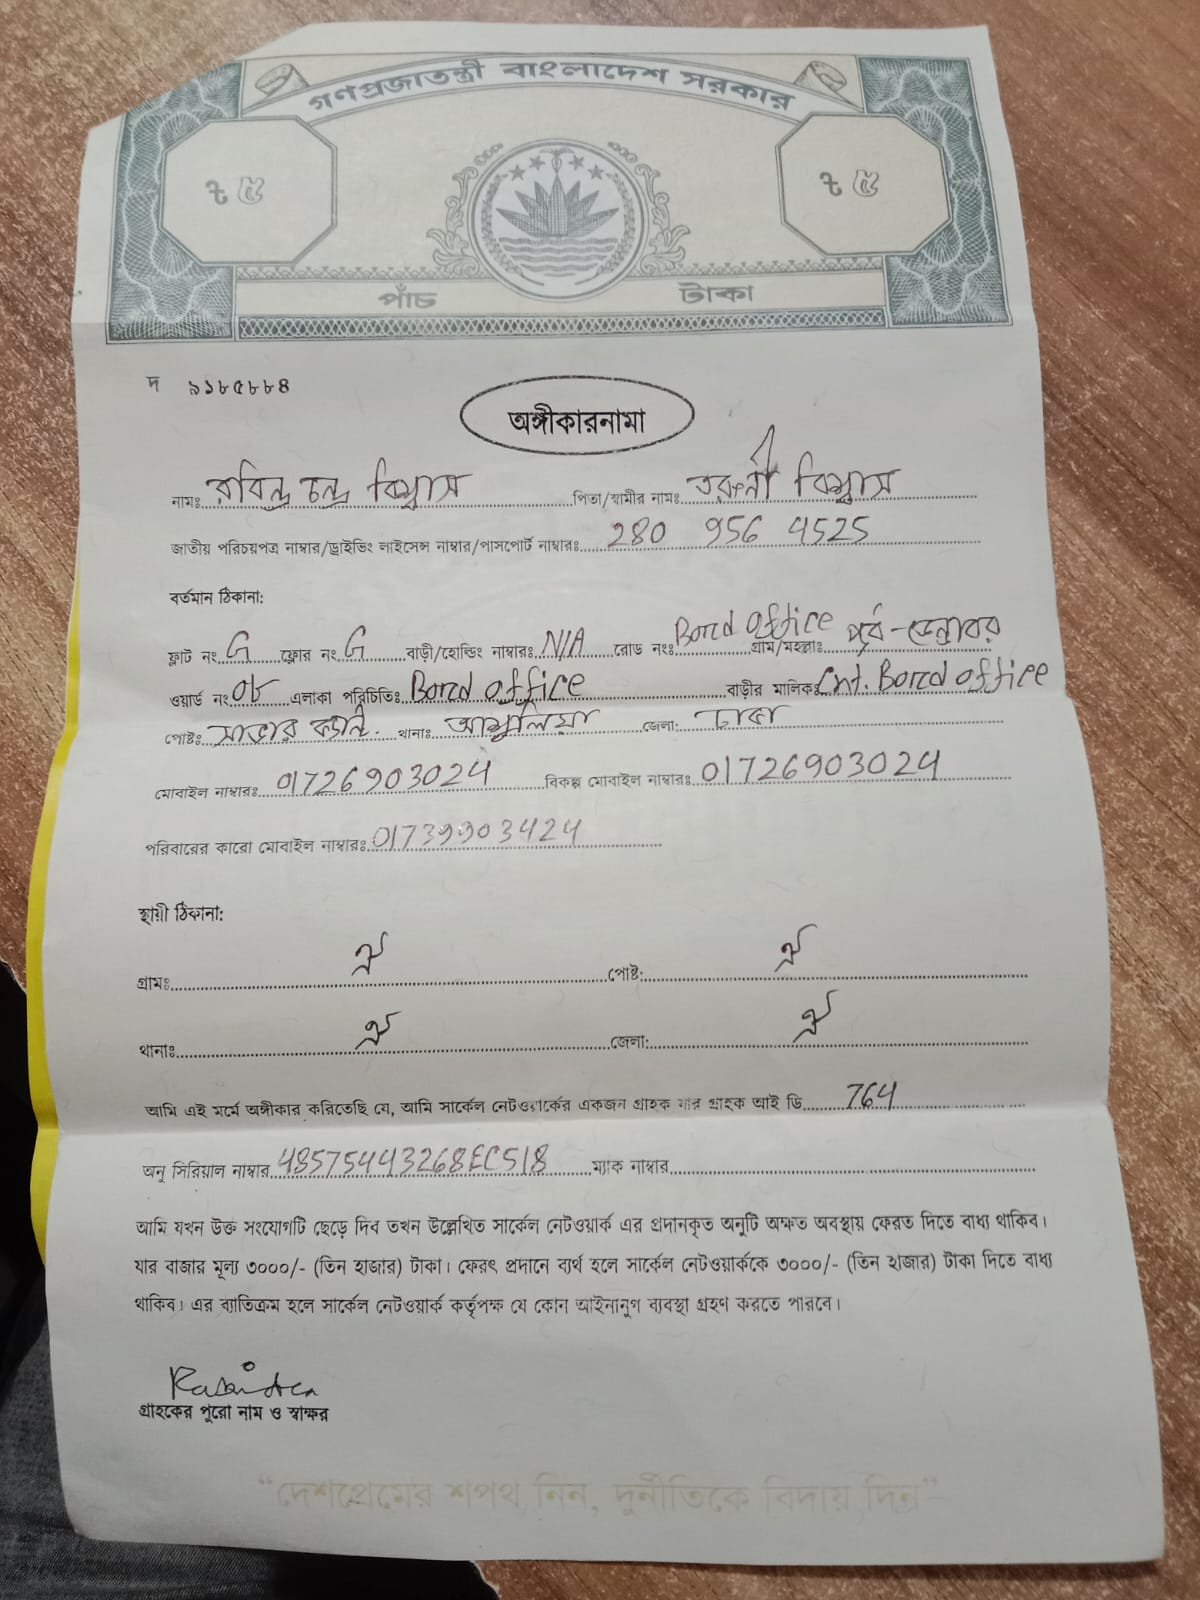 গণপ্রজাতন্ত্রী বাংলাদেশ সরকার
৳ ৫ ৳ ৫
পাঁচ টাকা
দ ৯১৮৫৮৮৪
অঙ্গীকারনামা
নামঃ রবিন্দ্র চন্দ্র বিশ্বাস পিতা/স্বামীর নামঃ তরুনী বিশ্বাস
জাতীয় পরিচয়পত্র নাম্বার/ড্রাইভিং লাইসেন্স নাম্বার/পাসপোর্ট নাম্বারঃ 280 956 4525
বর্তমান ঠিকানা:
ফ্লাট নং G ফ্লোর নং G বাড়ী/হোল্ডিং নাম্বারঃ N/A রোড নংঃ Bord office গ্রাম/মহল্লাঃ পূর্ব-ডেন্ডাবর
ওয়ার্ড নং ০৮ এলাকা পরিচিতিঃ Bord office বাড়ীর মালিকঃ Cnt. Bord office
পোষ্টঃ সাভার ক্যান্ট. থানাঃ আশুলিয়া জেলা: ঢাকা
মোবাইল নাম্বারঃ 01726903024 বিকল্প মোবাইল নাম্বারঃ 01726903024
পরিবারের কারো মোবাইল নাম্বারঃ 01739903424
স্থায়ী ঠিকানা:
গ্রামঃ ঐ পোষ্ট: ঐ
থানাঃ ঐ জেলা: ঐ
আমি এই মর্মে অঙ্গীকার করিতেছি যে, আমি সার্কেল নেটওয়ার্কের একজন গ্রাহক যার গ্রাহক আই ডি 764
অনু সিরিয়াল নাম্বার 48575443268EC518 ম্যাক নাম্বার
আমি যখন উক্ত সংযোগটি ছেড়ে দিব তখন উল্লেখিত সার্কেল নেটওয়ার্ক এর প্রদানকৃত অনুটি অক্ষত অবস্থায় ফেরত দিতে বাধ্য থাকিব।
যার বাজার মূল্য ৩০০০/- (তিন হাজার) টাকা। ফেরৎ প্রদানে ব্যর্থ হলে সার্কেল নেটওয়ার্ককে ৩০০০/- (তিন হাজার) টাকা দিতে বাধ্য
থাকিব। এর ব্যতিক্রম হলে সার্কেল নেটওয়ার্ক কর্তৃপক্ষ যে কোন আইনানুগ ব্যবস্থা গ্রহণ করতে পারবে।
Rabindra
গ্রাহকের পুরো নাম ও স্বাক্ষর
“দেশপ্রেমের শপথ নিন, দুর্নীতিকে বিদায় দিন”